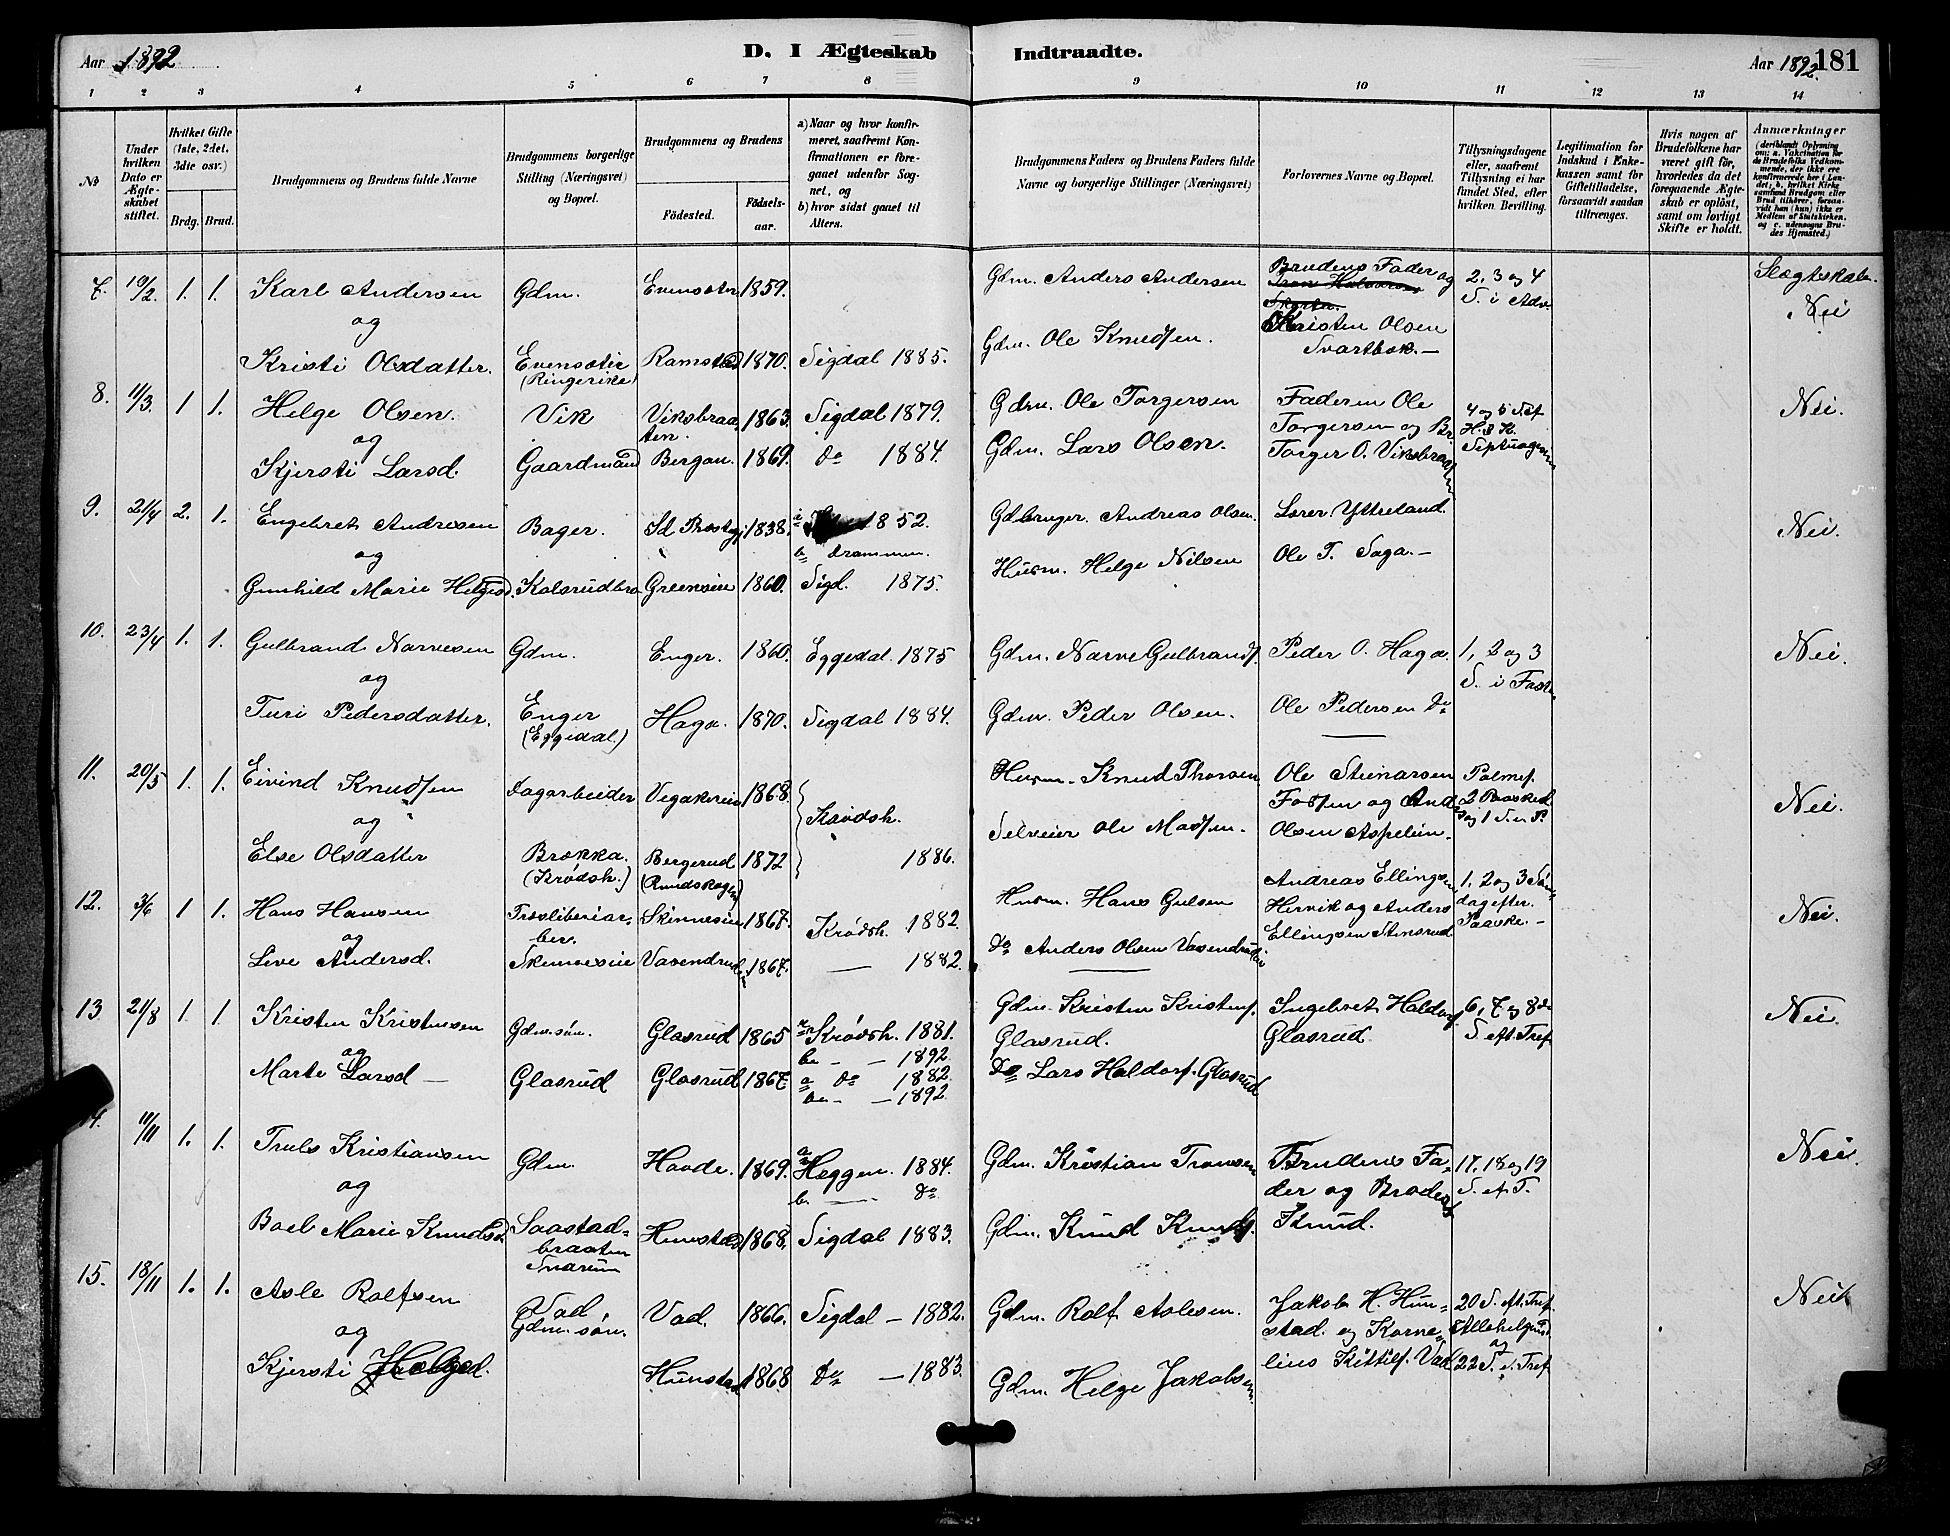 Aar 1892 D. I Ægteskab Indtraadte. Aar 1892. 181
1 2 3 4 5 6 7 8 9 10 11 12 13 14
№
Under hvilken Dato er Ægteskabet stiftet.
Hvilket Gifte (1ste, 2det, 3die osv.)
Brdg. Brud.
Brudgommens og Brudens fulde Navne
Brudgommens borgerlige Stilling (Næringsvei) og Bopæl.
Brudgommens og Brudens
Födested.
Födselsaar.
a) Naar og hvor konfirmeret, saafremt Konfirmationen er foregaaet udenfor Sognet, og
b) hvor sidst gaaet til Alters.
Brudgommens Faders og Brudens Faders fulde Navne og borgerlige Stillinger (Næringsvei)
Forlovernes Navne og Bopæl.
Tillysningsdagene eller, saafremt Tillysning ei har fundet Sted, efter hvilken Bevilling.
Legitimation for Indskud i Enkekassen samt för Giftetilladelse, forsaavidt saadan tiltrænges.
Hvis nogen af Brudefolkene har været gift för, hvorledes da det foregaaende Ægteskab er oplöst, samt om lovligt Skifte er holdt.
Anmærkninger (deriblandt Oplysning om: a. Vakcination for de Brudefolks Vedkommende, der ikke ere konfirmerede her i Landet; b. hvilket Kirkesamfund Brudgom eller Brud tilhörer, forsaavidt han (hun) ikke er Medlem af Statskirken, og c. udensogns Brudes Hjemsted.)
7. 19/2 1. 1. Karl Andersen Gdm. Evensæter 1859. Gdm. Anders Andersen Brudens Fader og 2, 3 og 4 Slægtskab.
og S. i Adv. Nei
Kristen Olsen
Kristi Olsdatter. Evensæter Ramstad 1870. Sigdal 1885. Gdm. Ole Knudsen. Svartbæk.—
(Ringerike)
8. 11/3. 1 1. Helge Olsen. Vik Viksbraaten. 1863. Sigdal 1879. Gdm. Ole Torgersen Faderen Ole Nei.
og Torgersen og Br. Septuages
Kjersti Larsd. Gaardmand Bergan. 1869. do 1884. Gdm. Lars Olsen. Torger O. Viksbraaten
9. 21/4 2. 1. Engebret Andresen Bager. 1838. 1852. Gdbruger. Andreas Olsen. Lærer Ytteland. Nei.
og b drammen.
Gunhild Marie Helgesd. Kolsrudbra Greenseie 1860. Sigd. 1875. Husm. Helge Nilsen Ole T. Saga.—
10. 23/4 1. 1. Gulbrand Narvesen Gdm. Enger. 1860. Eggedal 1875 Gdm. Narve Gulbrands. Peder O. Haga. 1, 2 og 3 Nei.
og S. i Faste
Turi Pedersdatter. Enger Haga. 1870. Sigdal 1884. Gdm. Peder Olsen. Ole Pedersen do
(Eggedal.)
11. 20/5 1. 1. Eivind Knudsen Dagarbeider 1868. Krødsh. Husm. Knud Thorsen Ole Steinarsen Palmes. Nei.
og Fossen og And. 2 Paaskd.
Else Olsdatter Brækka. Bergerud 1872 1886. Selveier Ole Madsen. Olsen Aspelien. og 1 S. e. P.
(Krødsh.) (Ruudskogen)
12. 3/6 1 1. Hans Hansen Træsliberiarber. Skinneseie 1867. Krødsh. 1882. Husm. Hans Gulsen Andreas Ellingsen 1, 2 og 3 Søndag efter Nei.
og Hervik og Anders Paaske.—
Live Andersd. Skinneseie Vasendrud 1867. — 1882. do Anders Olsen Vasendrudeie Ellingsen Stensrud
13 21/8 1 1. Kristen Kristensen Gdm. søn. Glæsrud 1865 a Krødsh. 1881. Gdm. Kristen Kristens. Ingebret Haldors 6, 7 og 8de Nei.
og b — — 1892. Glæsrud. Glæsrud. S. eft. Tref.
Marte Larsd — Glæsrud Glæsrud 1867 a do 1882. do Lars Haldors. Glæsrud
b — — 1892.
14. 11/11 1. 1. Truls Kristiansen Gdm. Hovde. 1869. a Heggen. 1884. Gdm. Kristian Tronsen Brudens Fa- 17, 18 og 19 Nei.
og b. — do der og Broders S. ef. T.
Boel Marie Knudsd. Saastad- Hunstad 1868. Sigdal 1883. Gdm. Knud Knuds. Knud.
braaten
Snarum
15. 18/11 1. 1. Asle Rolfsen Vad Vad. 1866. Sigdal — 1882. Gdm. Rolf Aslesen. Jakob H. Hun- 20 S. eft. Tref. Nei
og Gdm. søn. stad. og Korne- Allehelgens.
Kjersti Helgesd. Hunstad 1868 do — 1883. Gdm. Helge Jakobsen lius Kittils. Vad og 22 S. e. Tref